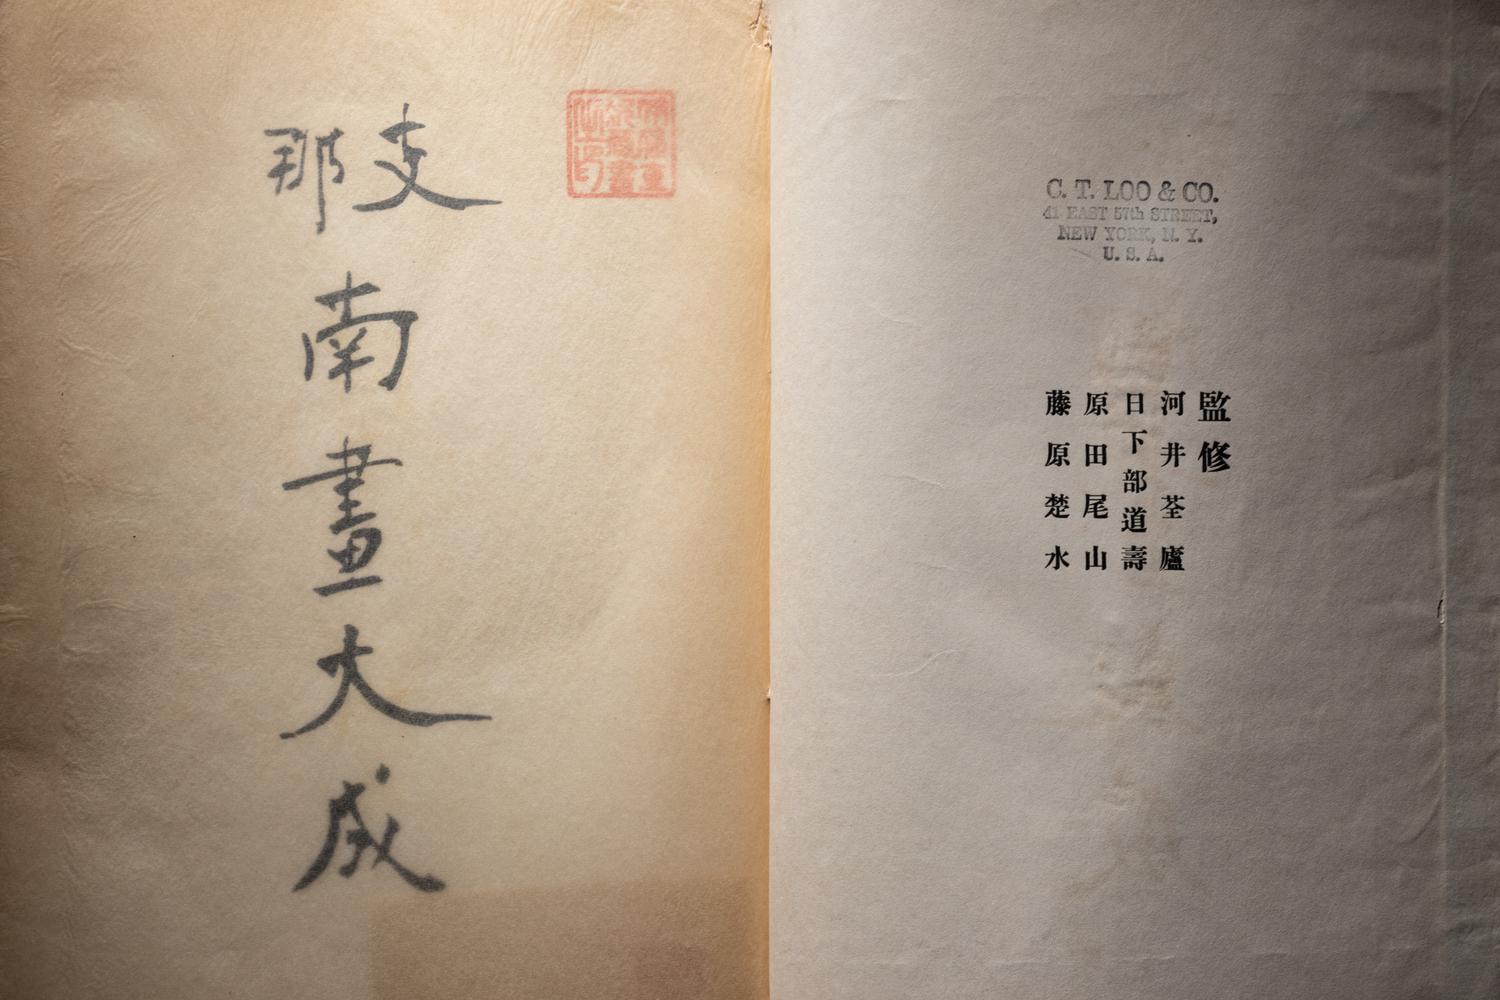 支那
南畫大成
C. T. LOO & CO.
41 EAST 57th STREET,
NEW YORK, N. Y.
U. S. A.
監修
河井荃廬
日下部道壽
原田尾山
藤原楚水